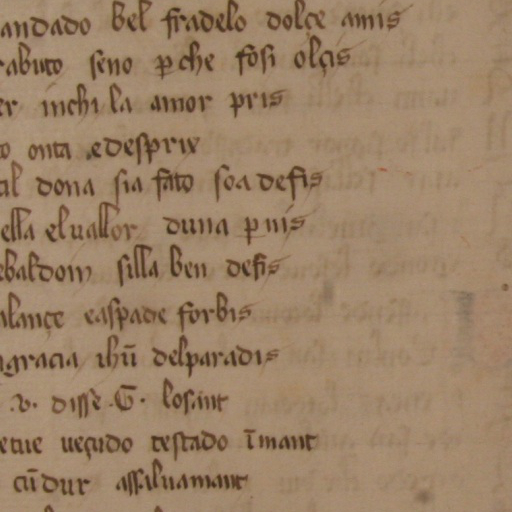 andado bel fradelo dolçe amis
rabuto seno p che fosi olçis
er inchi la amor pris
o onta e desprix
il dona sia fato soa defis
ella el uallor duna pnis
ebaldom silla ben defis
lançe easpade forbis
gracia ihū delparadis
.v. disse .G. losant
etue ueçudo testado īmant
cūdur assiluamant